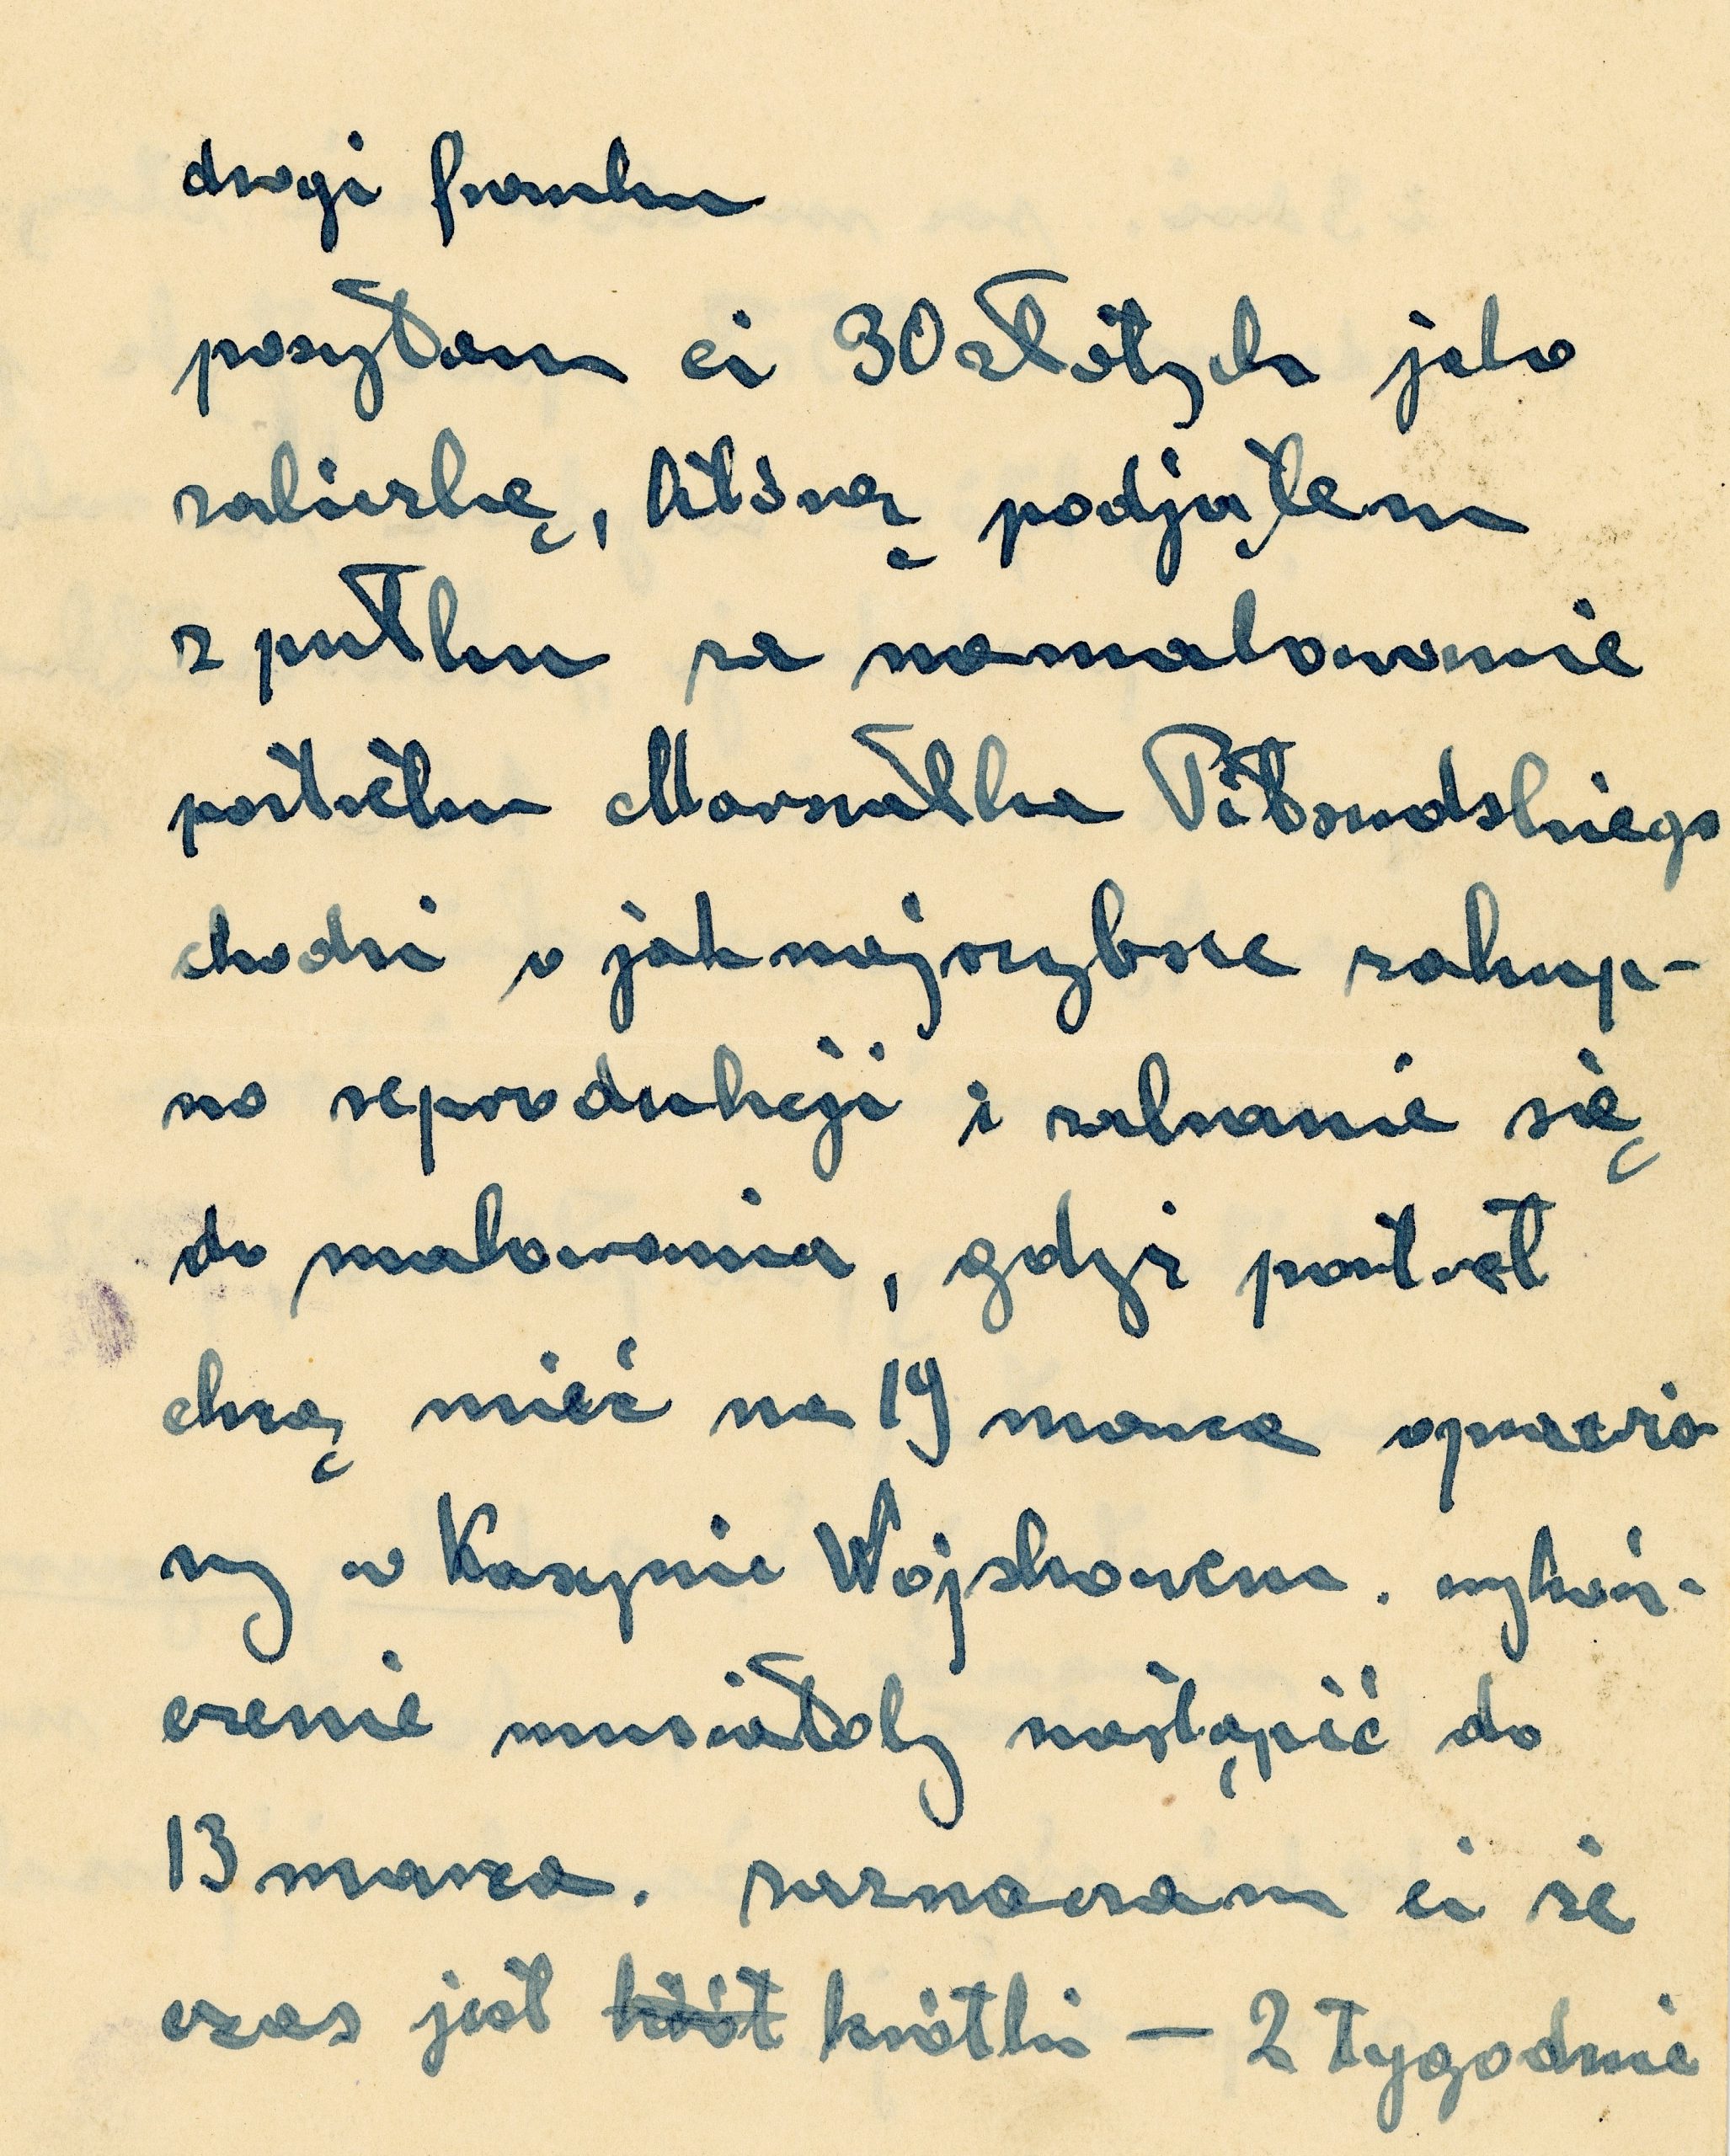 drogi franku
posyłam ci 30 złotych jako
zaliczkę, którą podjąłem
z pułku za namalowanie
portretu Marszałka Piłsudskiego
chodzi o jaknajszybsze zakup-
no reprodukcji i zabranie się
do malowania, gdyż portret
chcą mieć na 19 marca oprawio
ny w Kasynie Wojskowem. wykoń-
czenie musiałoby nastąpić do
13 marca. zaznaczam ci że
czas jest krót krótki — 2 tygodnie